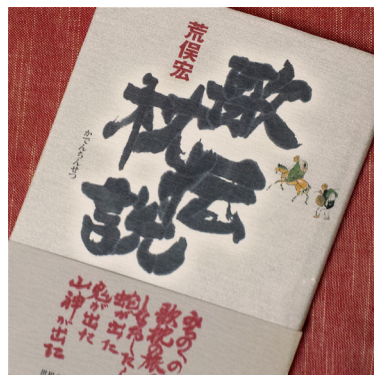 荒俣宏
歌伝
枕説
かでんちんせつ
みちのくの
歌枕旅
蛇が出た
鬼が出た
山神が出た